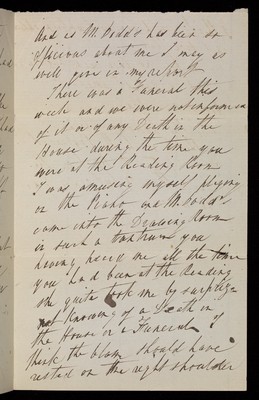 And as M. Dodds has been so
officious about me I may as
well give in my report
There was a Funeral this
week and we were not informed
of it or of any Death in the
House during the time you
were at the Reading Room
I was amusing myself playing
on the Piano and M. Dodds
came into the Drawing Room
in such a tantrum you
having heard me all the time
you had been at the Reading
she quite took me by surprize
not knowing of a Death in
the House or a Funeral I
think the blame should have
rested on the right shoulder